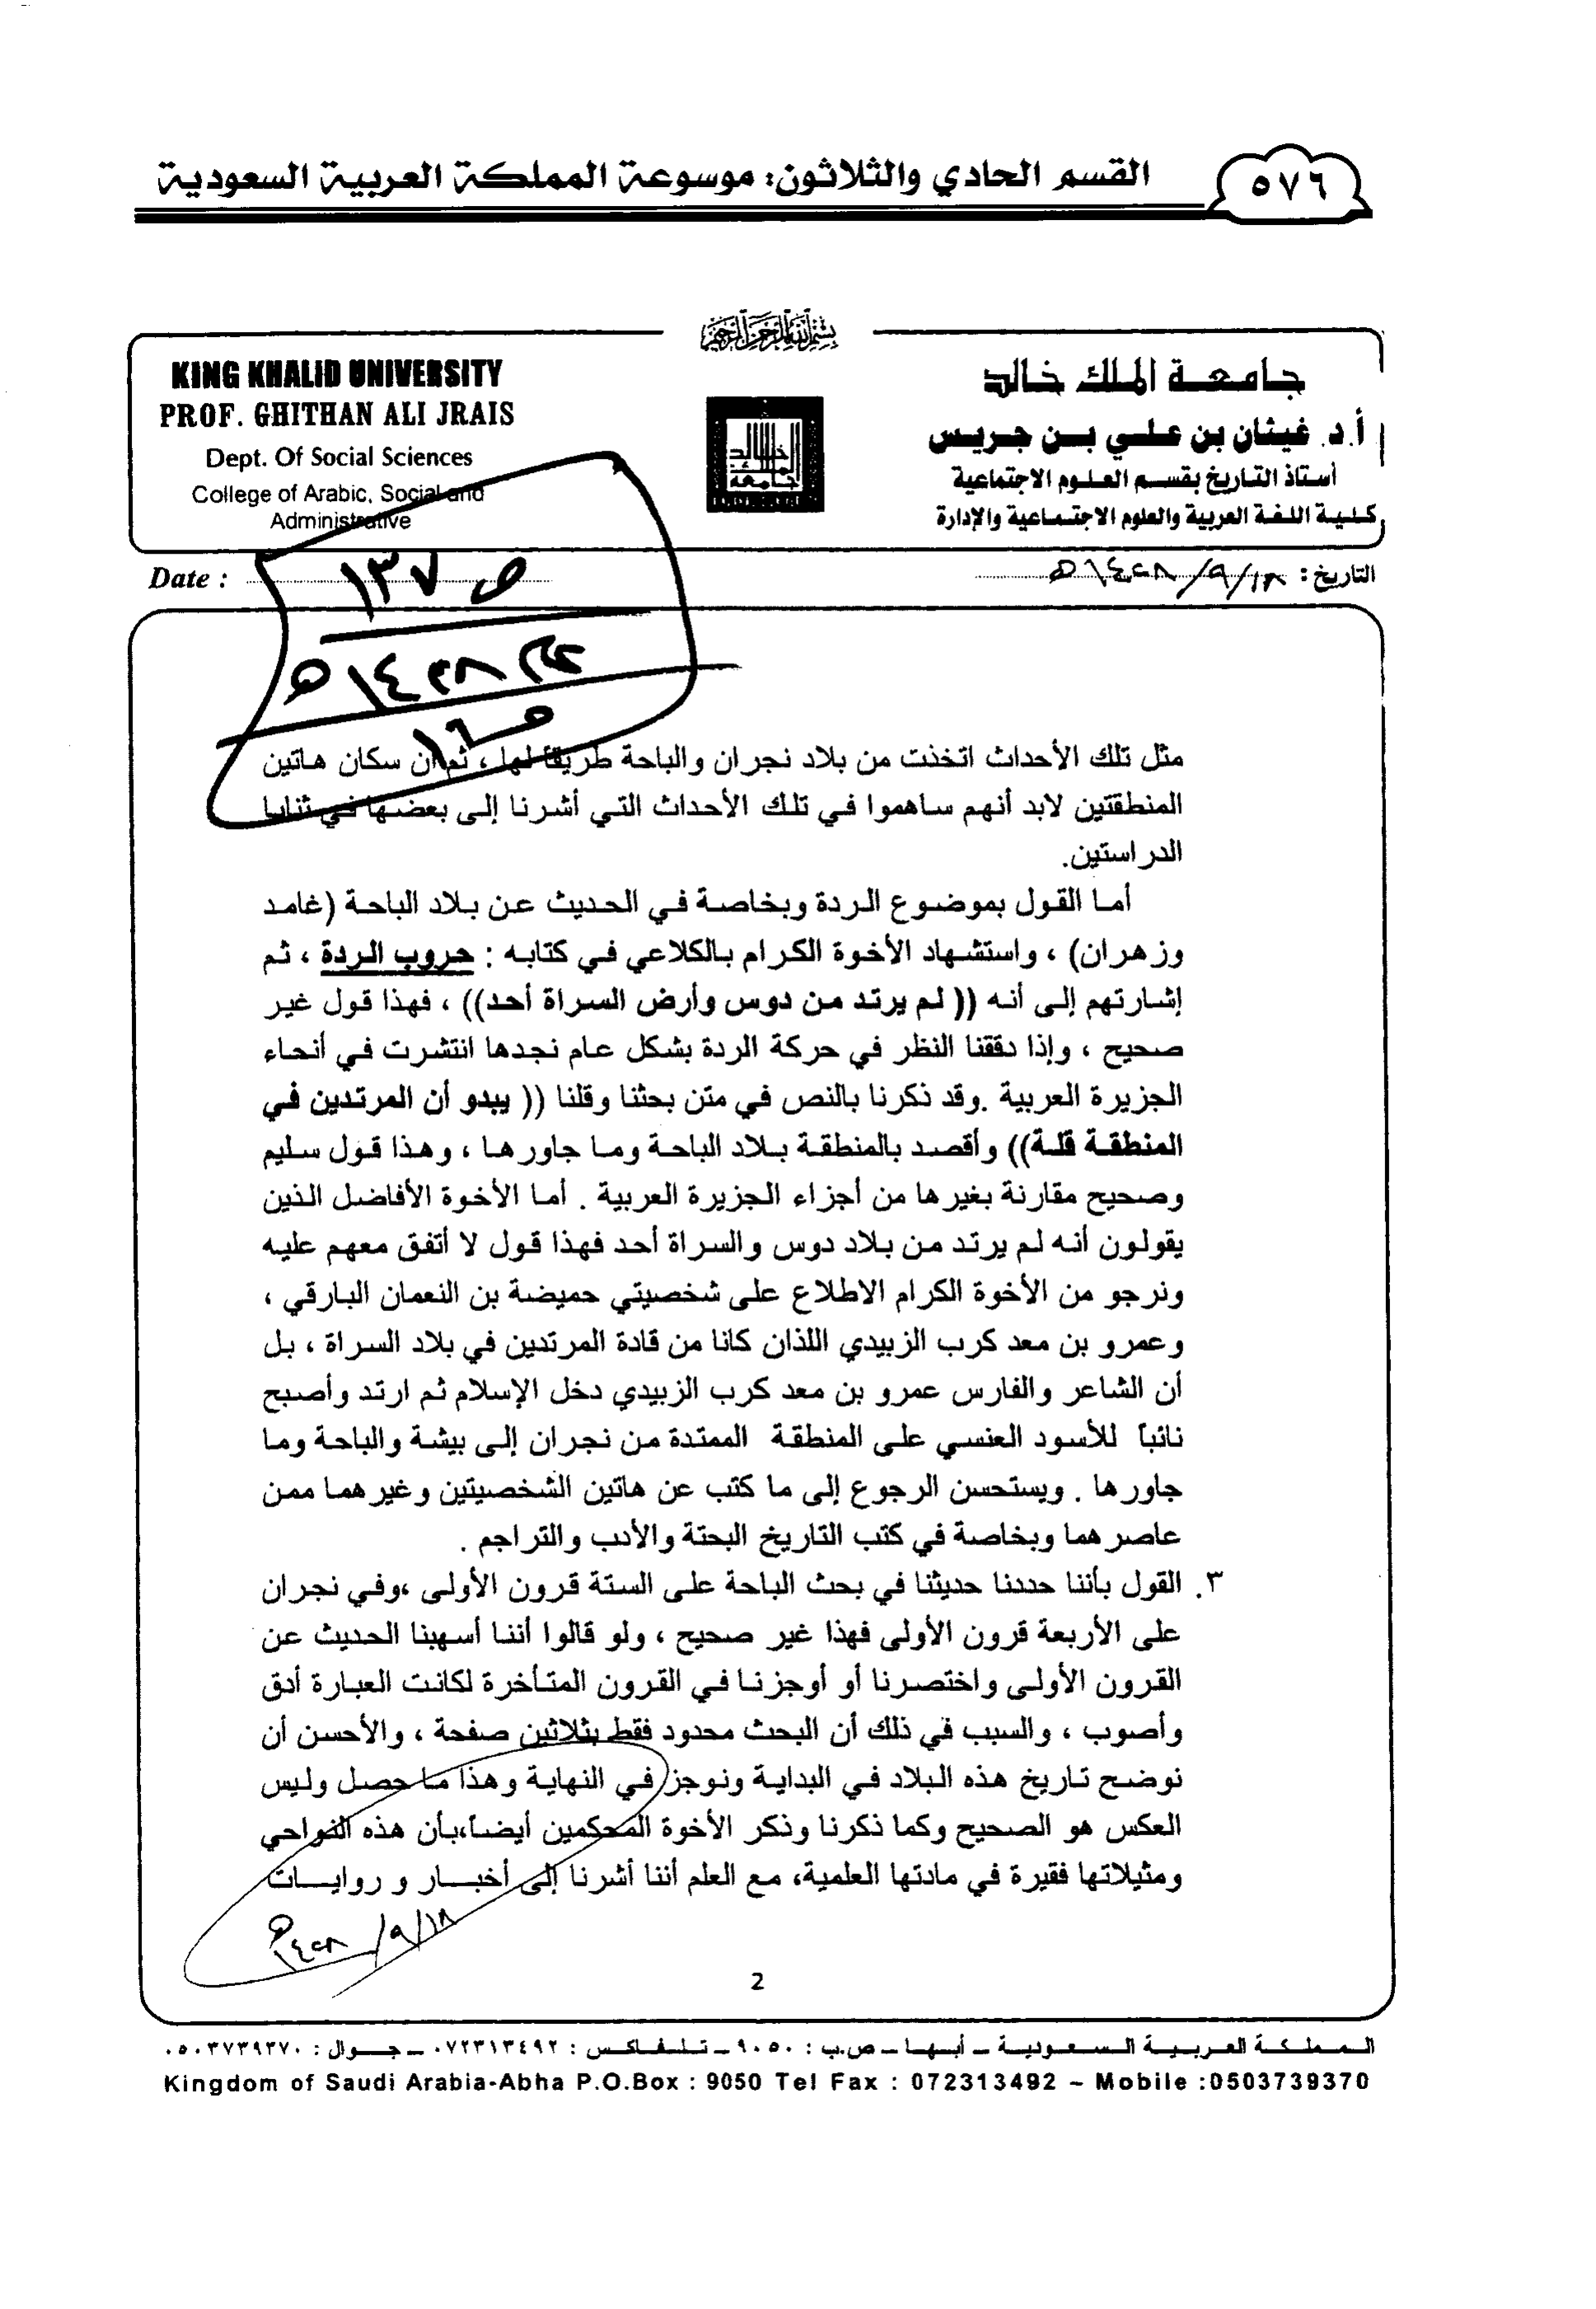 القسم الحادي والثلاثون: موسوعة المملكة العربية السعودية
٥٧٦
بسم الله الرحمن الرحيم
KING KHALID UNIVERSITY
PROF. GHITHAN ALI JRAIS
Dept. Of Social Sciences
College of Arabic, Social and
Administrative
جامعة الملك خالد
أ.د. غيثان بن علي بن جريس
أستاذ التاريخ بقسم العلوم الاجتماعية
كلية اللغة العربية والعلوم الاجتماعية والإدارة
Date :
التاريخ : ١٨/٩/١٤٢٨هـ
ص ١٣٧
مثل تلك الأحداث اتخذت من بلاد نجران والباحة طريقاً لها ، ثم أن سكان هاتين
المنطقتين لابد أنهم ساهموا في تلك الأحداث التي أشرنا إلى بعضها في ثنايا
الدراستين.
أما القول بموضوع الردة وبخاصة في الحديث عن بلاد الباحة (غامد
وزهران) ، واستشهاد الأخوة الكرام بالكلاعي في كتابه : حروب الردة ، ثم
إشارتهم إلى أنه (( لم يرتد من دوس وأرض السراة أحد)) ، فهذا قول غير
صحيح ، وإذا دققنا النظر في حركة الردة بشكل عام نجدها انتشرت في أنحاء
الجزيرة العربية .وقد ذكرنا بالنص في متن بحثنا وقلنا (( يبدو أن المرتدين في
المنطقة قلة)) وأقصد بالمنطقة بلاد الباحة وما جاورها ، وهذا قول سليم
وصحيح مقارنة بغيرها من أجزاء الجزيرة العربية . أما الأخوة الأفاضل الذين
يقولون أنه لم يرتد من بلاد دوس والسراة أحد فهذا قول لا أتفق معهم عليه
ونرجو من الأخوة الكرام الاطلاع على شخصيتي حميضة بن النعمان البارقي ،
وعمرو بن معد كرب الزبيدي اللذان كانا من قادة المرتدين في بلاد السراة ، بل
أن الشاعر والفارس عمرو بن معد كرب الزبيدي دخل الإسلام ثم ارتد وأصبح
نائباً للأسود العنسي على المنطقة الممتدة من نجران إلى بيشة والباحة وما
جاورها . ويستحسن الرجوع إلى ما كتب عن هاتين الشخصيتين وغيرهما ممن
عاصرهما وبخاصة في كتب التاريخ البحتة والأدب والتراجم .
٣. القول بأننا حددنا حديثنا في بحث الباحة على الستة قرون الأولى ،وفي نجران
على الأربعة قرون الأولى فهذا غير صحيح ، ولو قالوا أننا أسهبنا الحديث عن
القرون الأولى واختصرنا أو أوجزنا في القرون المتأخرة لكانت العبارة أدق
وأصوب ، والسبب في ذلك أن البحث محدود فقط بثلاثين صفحة ، والأحسن أن
نوضح تاريخ هذه البلاد في البداية ونوجز في النهاية وهذا ما حصل وليس
العكس هو الصحيح وكما ذكرنا وذكر الأخوة المحكمين أيضاً،بأن هذه النواحي
ومثيلاتها فقيرة في مادتها العلمية، مع العلم أننا أشرنا إلى أخبار و روايات
١٨/٩/١٤٢٨هـ
2
المملكة العربية السعودية – أبها – ص.ب : ٩٠٥٠ – تلفاكس : ٠٧٢٣١٣٤٩٢ – جوال : ٠٥٠٣٧٣٩٣٧٠
Kingdom of Saudi Arabia-Abha P.O.Box : 9050 Tel Fax : 072313492 – Mobile :0503739370